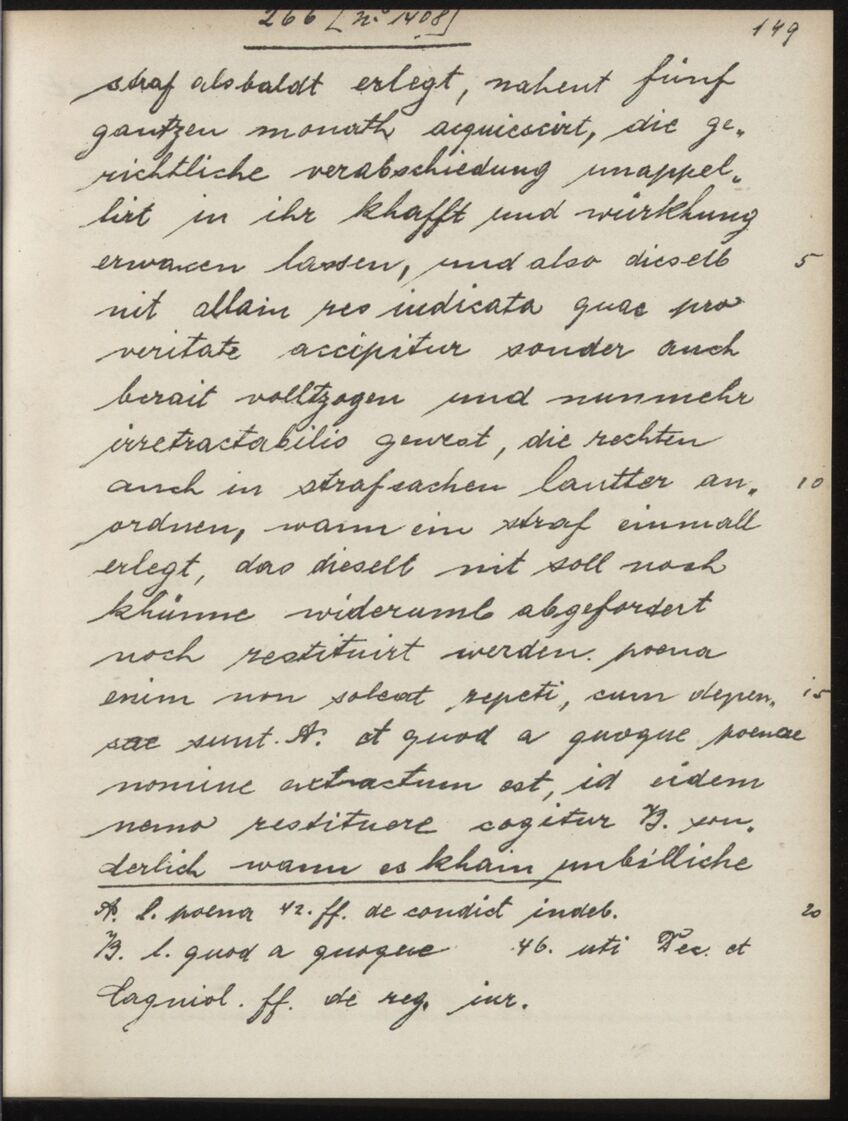 266 [No 1408]
149
straf alsbaldt erlegt, nahent fünf
gantzen monath acquiescirt, die ge„
richtliche verabschiedung unappel„
lirt in ihr khafft und würkhung
erwaxen lassen, und also dieselb
5
nit allain res iudicata quae pro
veritate accipitur sonder auch
berait volltzogen und nunmehr
irretractabilis gewest, die rechten
auch in strafsachen lautter an„
10
ordnen, wann ein straf einmall
erlegt, das dieselb nit soll noch
khünne widerumb abgefordert
noch restituirt werden. poena
enim non soleat repeti, cum depen„
15
sae sunt. A. et quod a quoque poenae
nomine extractum est, id eidem
nemo restituere cogitur B. son„
derlich wann es khain unbilliche
A. l. poena 42. ff. de condict indeb.
20
B. l. quod a quoque 46. uti Dec. et
Cagniol. ff. de reg. iur.